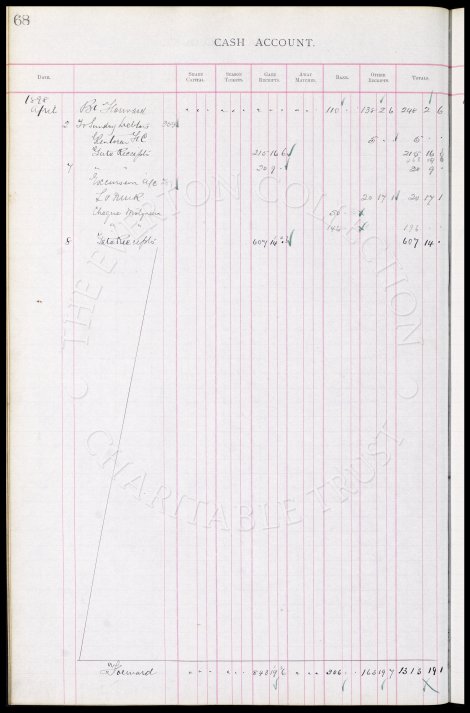 68
CASH ACCOUNT.
DATE. SHARE CAPITAL. SEASON TICKETS. GATE RECEIPTS. AWAY MATCHES. BANK. OTHER RECEIPTS. TOTALS.
1898
April Bt Forward 110 138 2 6 248 2 6
2 To Sunday Debtors
F.C. 5 5
Gate Receipts 215 16 6 215 16 6
7 " " 20 9 20 9
Excursion a/c
20 17 1 20 17 1
Cheque
" "
8 Gate Receipts 607 14 607 14
Forward 843 19 6 306 163 19 7 1313 19 1
THE EVERTON COLLECTION
CHARITABLE TRUST